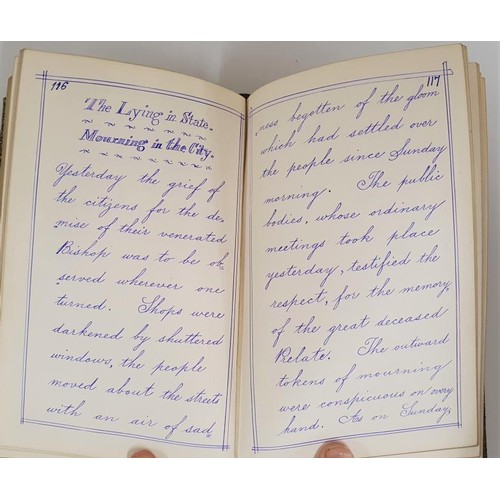 116
The Lying in State.
Mourning in the City.
Yesterday the grief of
the citizens for the de-
mise of their venerated
Bishop was to be ob-
served wherever one
turned. Shops were
darkened by shuttered
windows, the people
moved about the streets
with an air of sad
117
ness begotten of the gloom
which had settled over
the people since Sunday
morning. The public
bodies, whose ordinary
meetings took place
yesterday, testified the
respect, for the memory
of the great deceased
Prelate. The outward
tokens of mourning
were conspicuous on every
hand. As on Sunday,